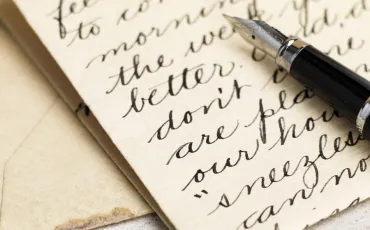 to co
morning
the wee
better. 
don't
are pla
our hou
"sneezles
can no